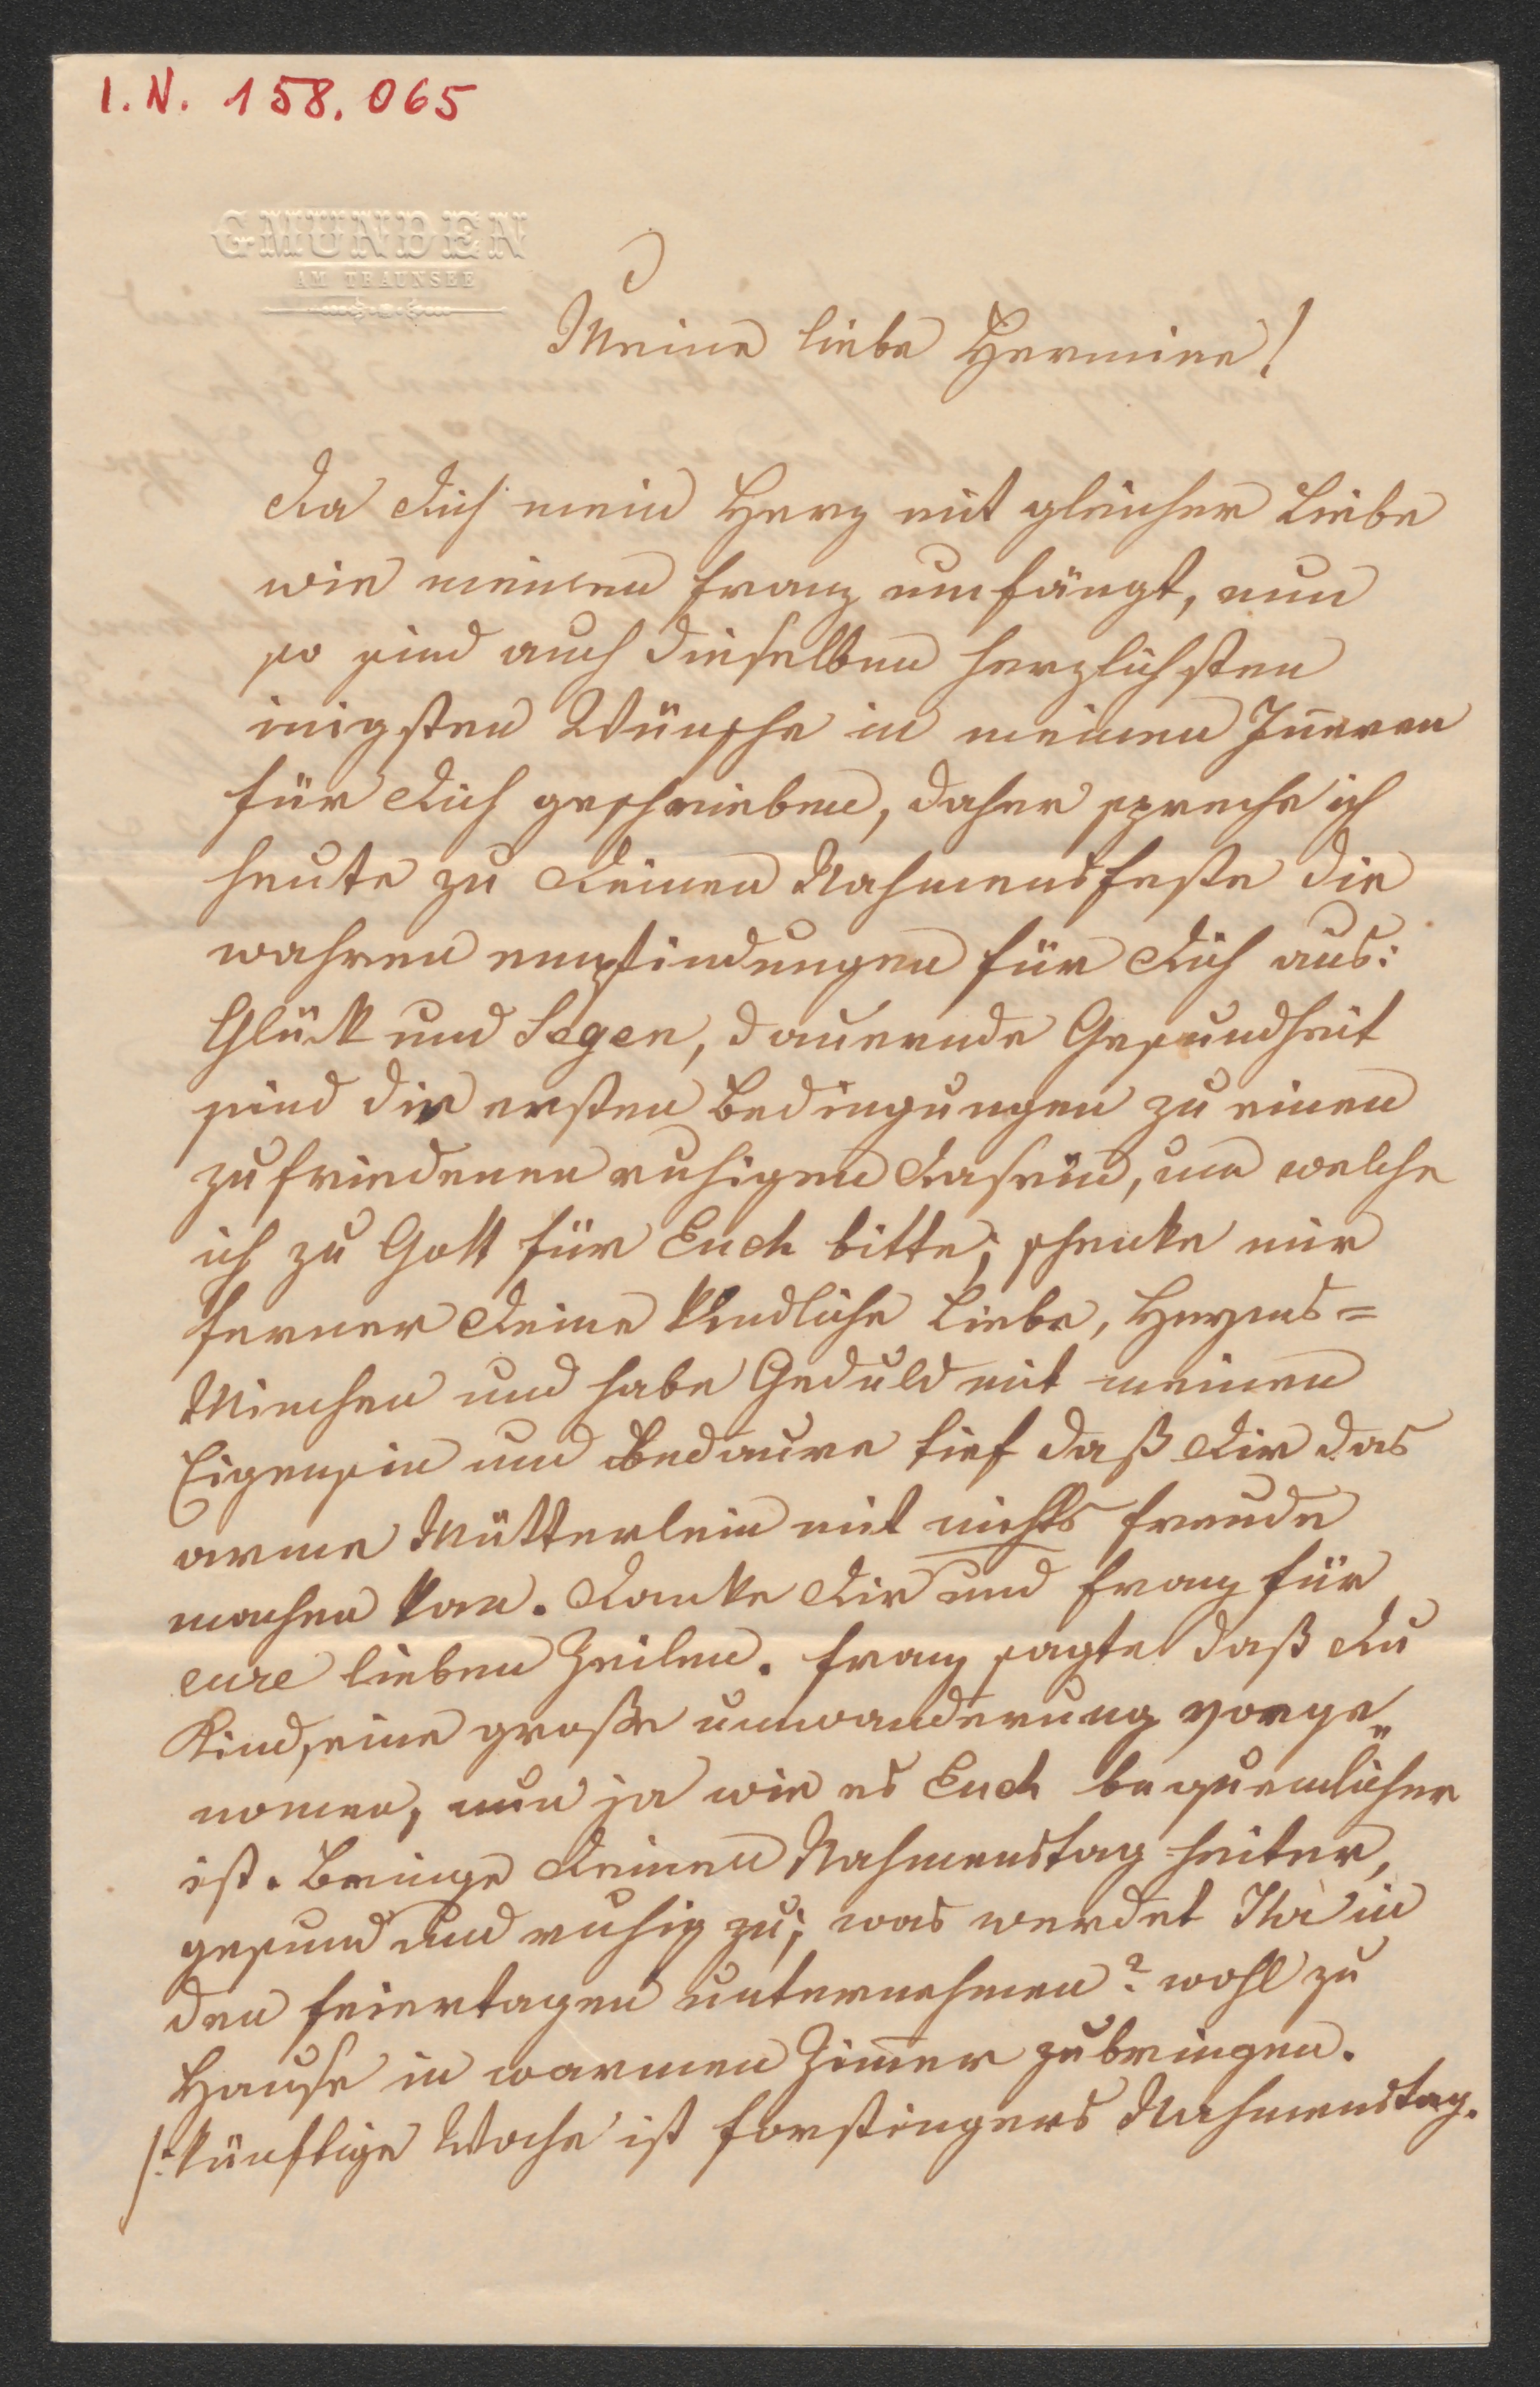 I. N. 158.065
GMUNDEN
AM TRAUNSEE
Meine liebe Hermine!
Da Dich mein Herz mit gleicher Liebe
wie meinen Franz umfängt, nun
so sind auch dieselben herzlichsten
inigsten Wünsche in meinen Iñeren
für Dich geschrieben, daher spreche ich
heute zu Deinen Nahmensfeste die
wahren empfindungen für Dich aus:
Glück und Segen, dauernde Gesundheit
sind die ersten Bedingungen zu einen
zufriedenen ruhigen Dasein, um welche
ich zu Gott für Euch bitte; schenke mir
ferner Deine kindliche Liebe, Herzens=
Minchen und habe Geduld mit meinen
Eigensin und bedaure tief daß Dir das
arme Mütterlein mit nichts Freude
machen kan. Danke Dir und Franz für
eure lieben Zeilen. Franz sagte daß Du
Kind, eine große umwanderung vorge„
nomen, nun ja wie es Euch bequemlicher
ist. Bringe Deinen Nahmenstag heiter,
gesund und ruhig zu; was werdet Ihr in
den Feiertagen unternehmen? wohl zu
Hause in warmen Zim̄er zubringen.
/: künftige Woche ist Forstingers Nahmenstag.